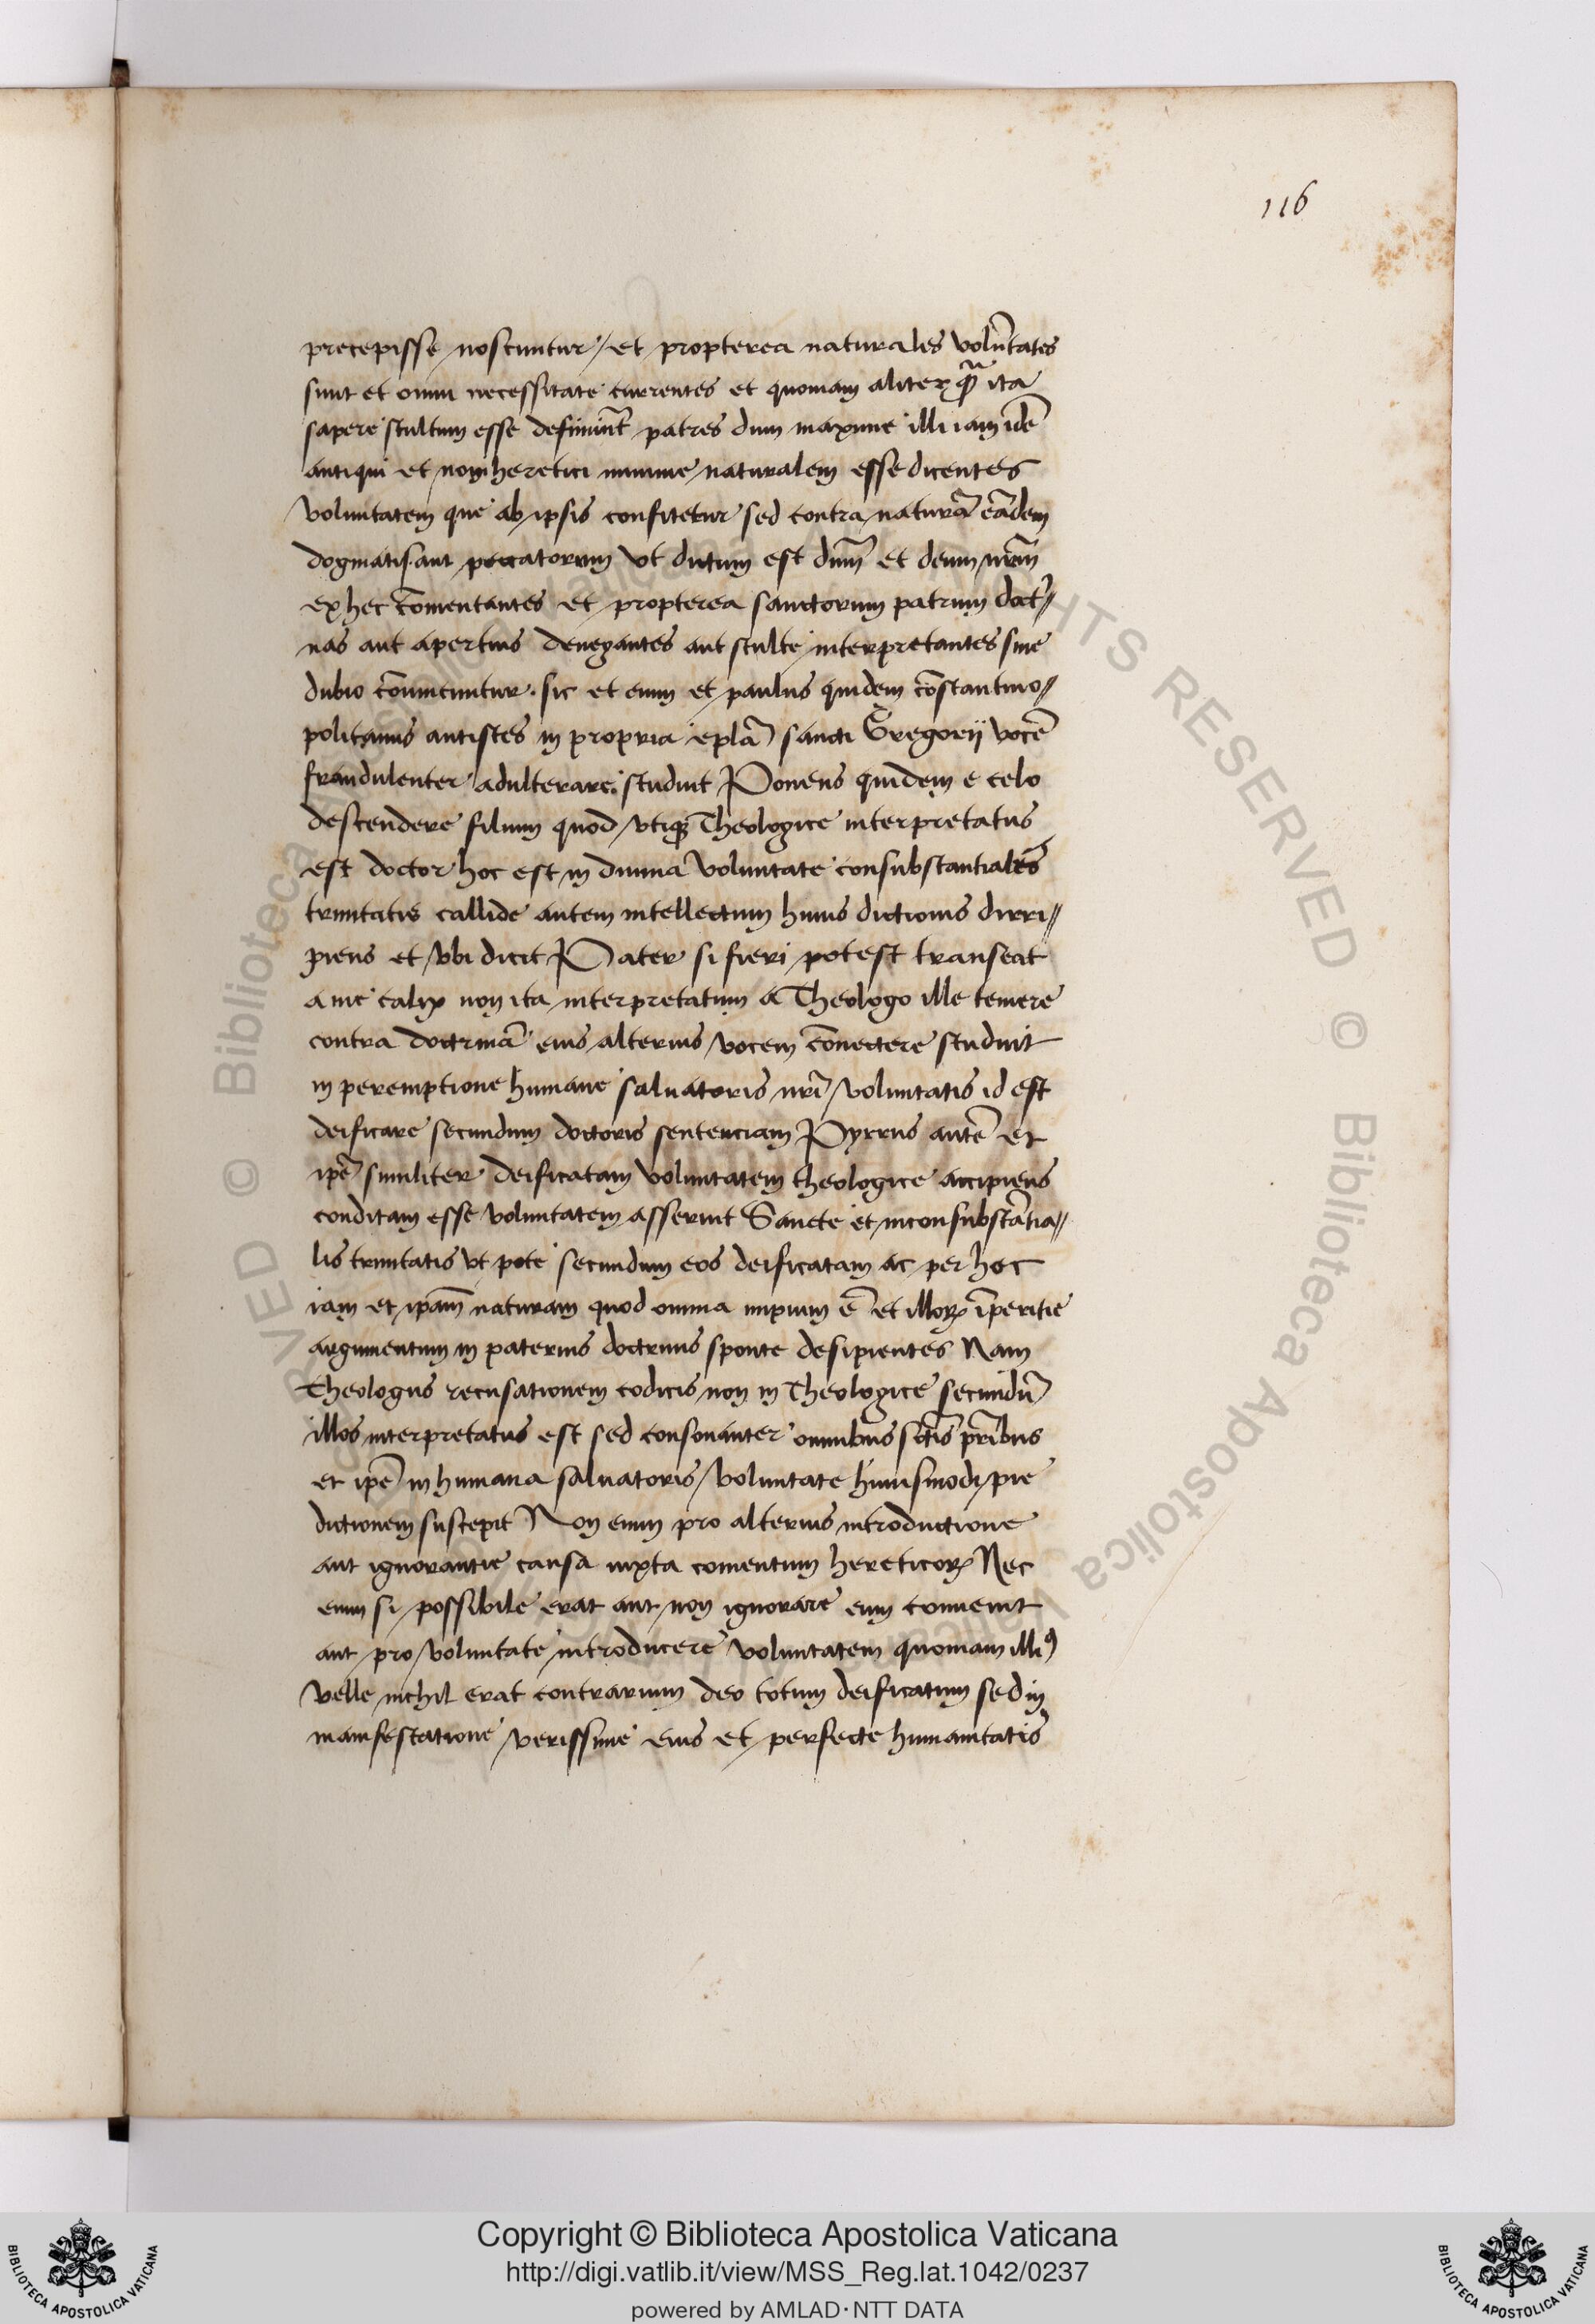 116
precepisse noscuntur / et propterea naturales volu̅tates
sunt et omni necessitate currentes et quoniam aliter q̅ ita
sapere stultum esse definiu̅t patres dum maxime illi iam ide̅
antiqui et non heretici minime naturalem esse dicentes
voluntatem que ab ipsis confitetur sed contra natura̅ ea̅dem
dogmatisant peccatorum vt dictum est dn̅m et deum nr̅m
ex hec co̅mentantes et propterea sanctorum patrum doct̉i//
nas aut apertius denegantes aut stulte interpretantes sine
dubio co̅uincuntur . sic et enim et paulus quidem co̅stantino//
politanus antistes in propria epl̅a sancti Gregorij voce̅
fraudulenter adulterare studuit Ponens quidem e celo
descendere filium quod vtiq₃ Theologice interpretatus
est doctor hoc est in diuina voluntate consubstantiales
trinitatis callide autem intellectum huius dictionis dirri//
piens et vbi dicit Pater si fieri potest transeat
a me calix non ita interpretatum a Theologo ille temere
contra doctrina̅ eius alterius vocem co̅nectere studuit
in peremptione humane saluatoris nr̅i voluntatis id est
deificare secundum doctoris sentenciam Pyrrus aute̅ et
ip̅e similiter deificatam voluntatem theologice accipiens
conditam esse voluntatem asseruit Sancte et inconsubsta̅tia//
lis trinitatis vt pote secundum eos deificatam ac per hoc
iam et ip̅am naturam quod omnia impium e̅ et illoꝝ i̅peritie
argumentum in paternis doctrinis sponte desipientes Nam
Theologus recusationem codicis non in Theologice secundu̅
illos interpretatus est sed consonanter omnibus sc̅tis pr̅ibus
et ip̅e in humana saluatoris voluntate huiusmodi pre
dictionem suscepit Non enim pro alterius introductione
aut ignorantie causa iuxta comentum hereticoꝝ Nec
enim si possibile erat aut non ignorare eum conuenit
aut pro voluntate introducere voluntatem quoniam illiꝰ
velle nichil erat contrarium deo totum deificatum sed in
manifestatione verissime eius et perfecte humanitatis
Copyright © Biblioteca Apostolica Vaticana
http://digi.vatlib.it/view/MSS_Reg.lat.1042/0237
powered by AMLAD·NTT DATA